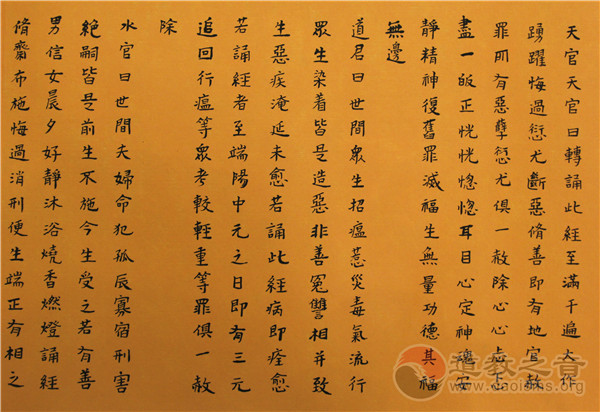 天官天官曰轉誦此經至滿千遍大作
踴躍悔過愆尤斷惡脩善即有地官赦
罪所有惡孽愆尤俱一赦除心心忐忑
盡一皈正恍恍惚惚耳目心定神魂安
靜精神復舊罪滅福生無量功德其福
無邊
道君曰世間眾生招瘟惹災毒氣流行
眾生染着皆是造惡非善冤讐相并致
生惡疾淹延未愈若誦此經病即痊愈
若誦經者至端陽中元之日即有三元
追回行瘟等眾考較輕重等罪俱一赦
除
水官曰世間夫婦命犯孤辰寡宿刑害
絕嗣皆是前生不施今生受之若有善
男信女晨夕好靜沐浴燒香燃燈誦經
脩齋布施悔過消刑便生端正有相之
道教之音
www.daoisms.org